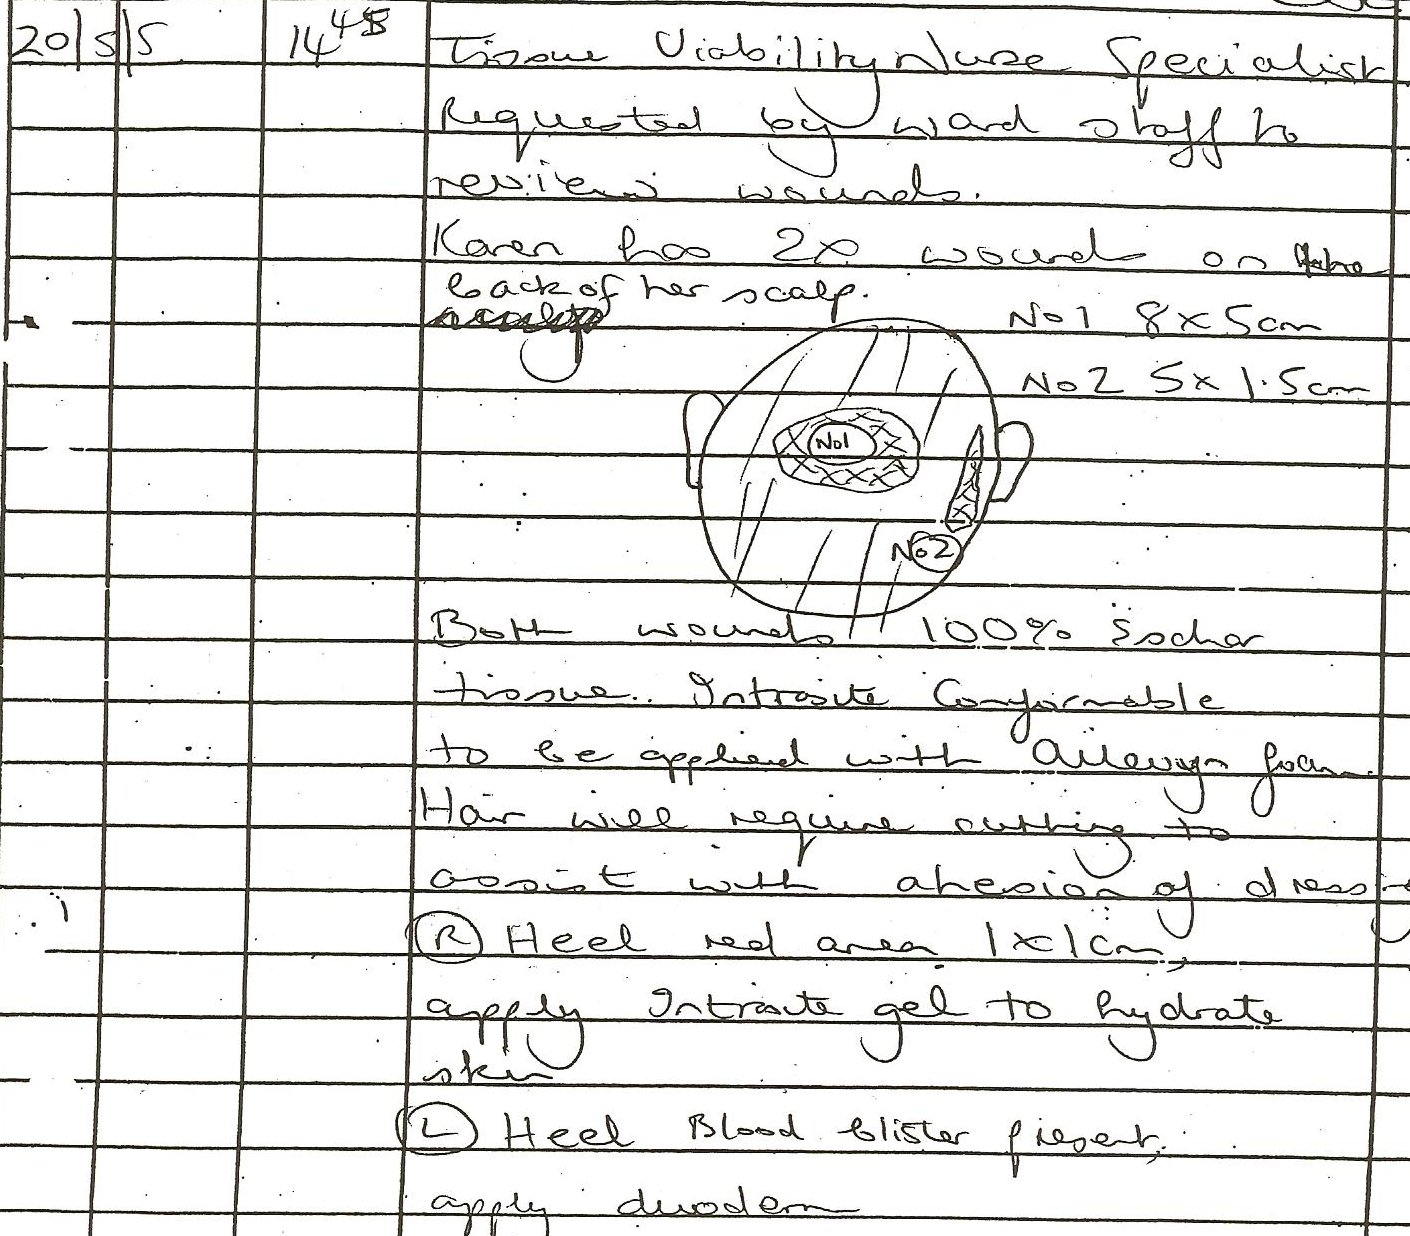 20/5/5 14 45 Tissue Viability Nurse Specialist
Requested by ward staff to
review wounds.
Karen has 2x wound on the
back of her scalp.
No1 8 x 5cm
No2 5x 1.5cm
No1
No2
Both wounds 100% Eschar
tissue. Intrasite Conformable
to be applied with Allevyn foam.
Hair will require cutting to
assist with ahesion of dressing
(R) Heel red area 1x1cm,
apply Intrasite gel to hydrate
skin
(L) Heel Blood blister present,
apply duoderm